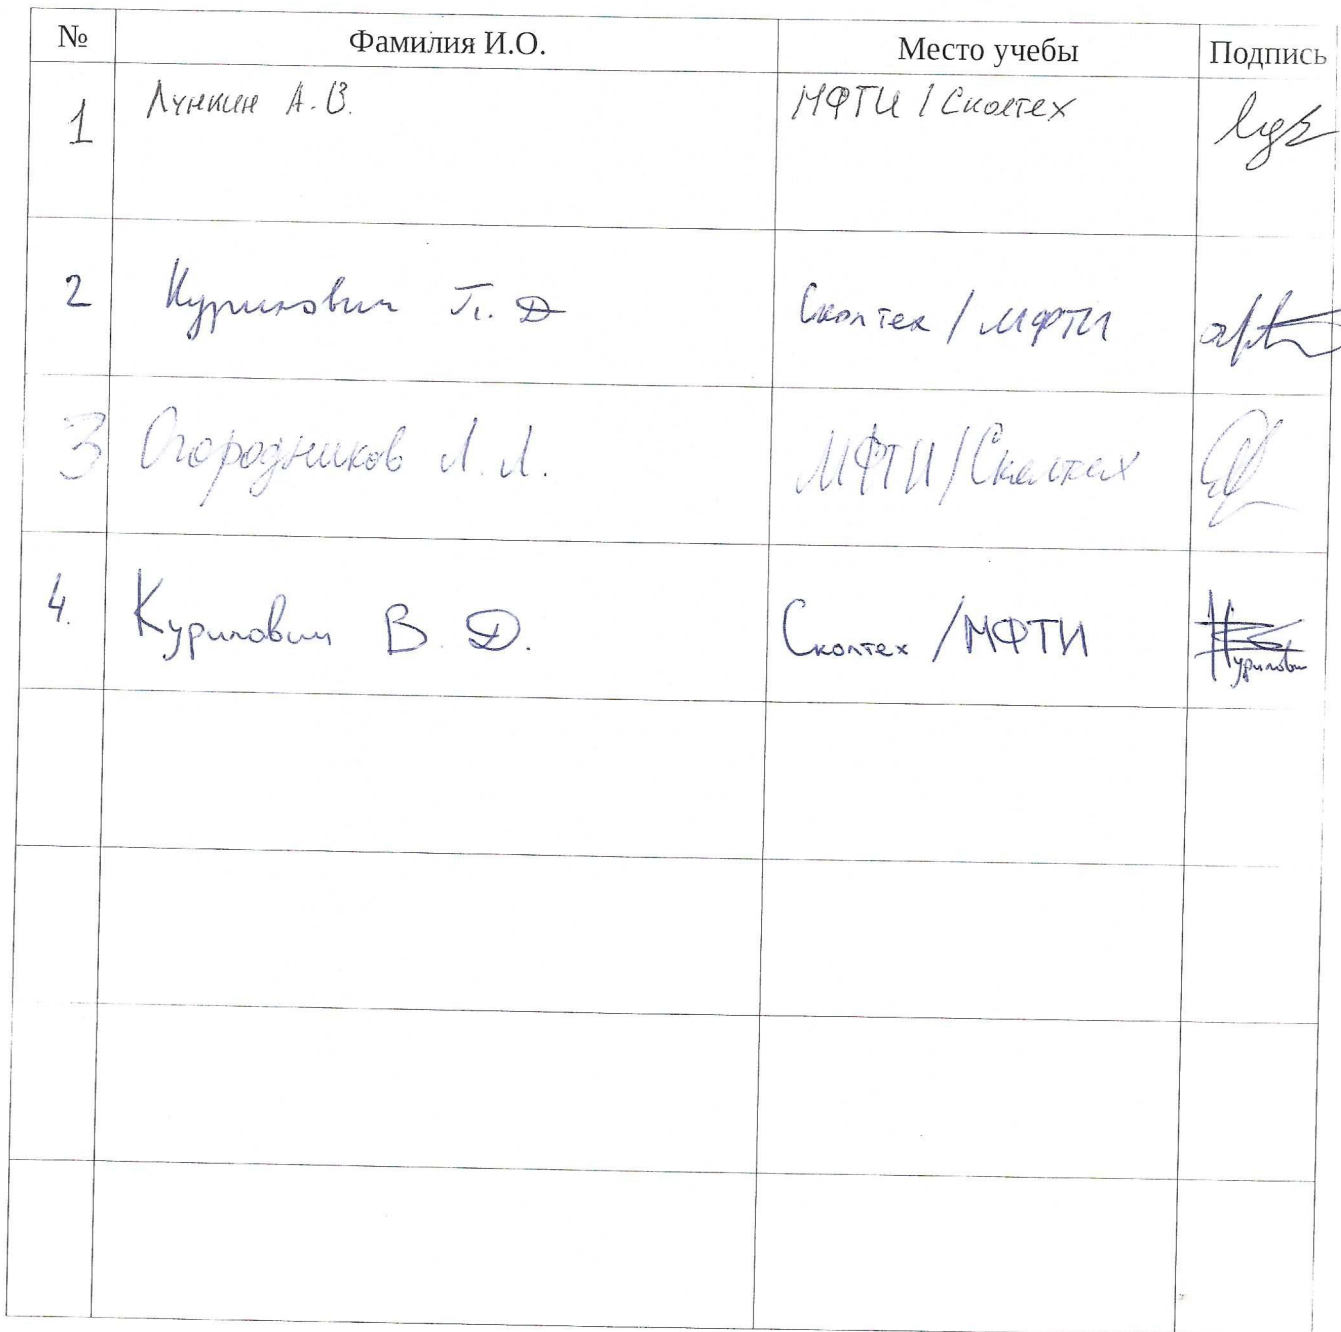 № Фамилия И.О. Место учебы Подпись
1 Лункин А.В. МФТИ / Сколтех
2 Курилович П.Д Сколтех / МФТИ
3 Огородников Л.Л. МФТИ/Сколтех
4. Курилович В.Д. Сколтех / МФТИ Курилович